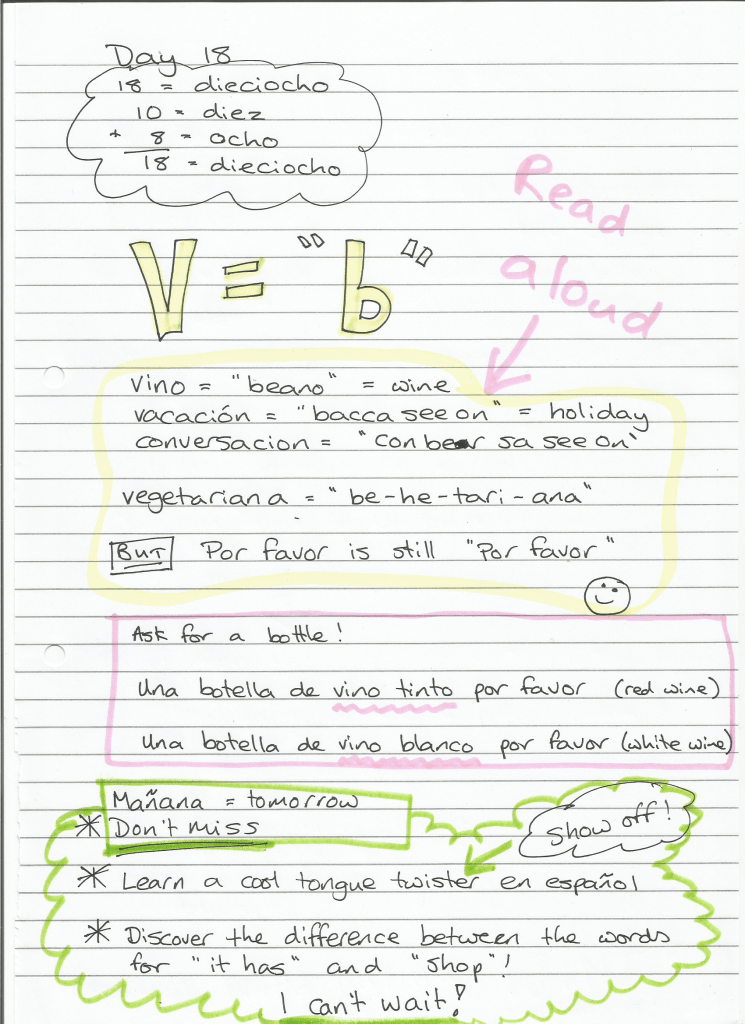 Day 18
18 = dieciocho
10 = diez
+ 8 = ocho
18 = dieciocho
Read
aloud
V = "b"
vino = "beano" = wine
vacación = "bacca see on" = holiday
conversacion = "con bear sa see on"
vegetariana = "be-he-tari-ana"
BUT Por favor is still "Por favor"
Ask for a bottle!
Una botella de vino tinto por favor (red wine)
Una botella de vino blanco por favor (white wine)
Mañana = tomorrow
* Don't miss
Show off!
* Learn a cool tongue twister en español
* Discover the difference between the words
for "it has" and "shop"!
I can't wait!